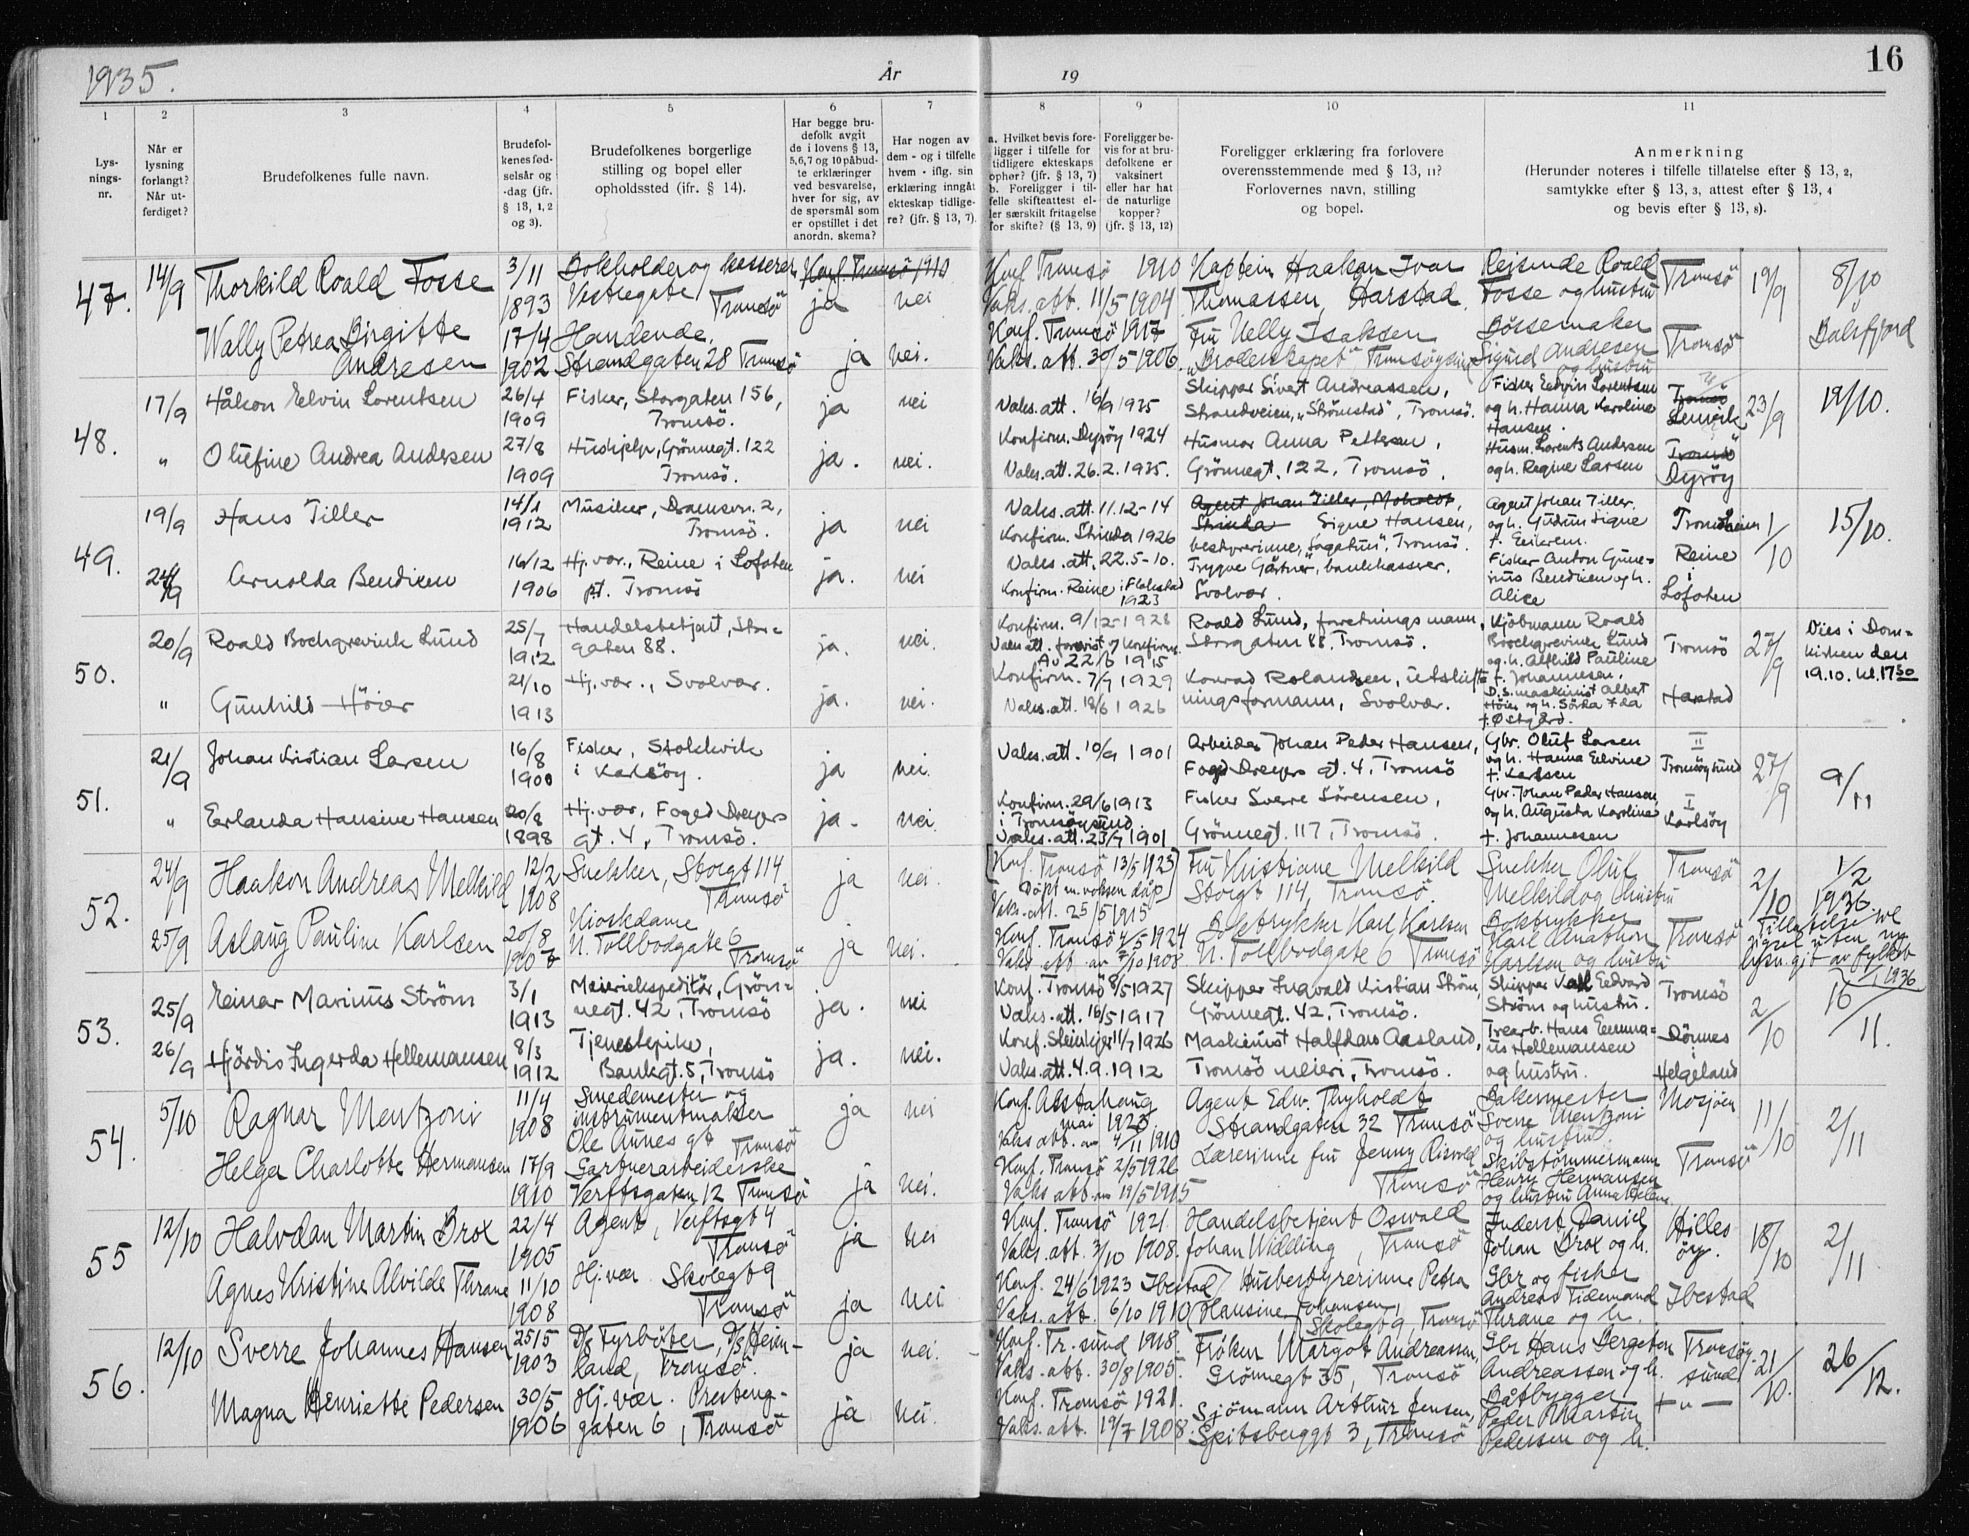 1935.
År
19
16
1
2
3
4
5
6
7
8
9
10
11
Lys-
nings-
nr.
Når er
lysning
forlangt?
Når ut-
ferdiget?
Brudefolkenes fulle navn.
Brudefol-
kenes fød-
selsår og
-dag (jfr.
§ 13, 1, 2
og 3).
Brudefolkenes borgerlige
stilling og bopel eller
opholdssted (jfr. § 14).
Har begge bru-
defolk avgit
de i lovens § 13,
5,6,7 og 10 påbud-
te erklæringer
ved besvarelse,
hver for sig, av
de spørsmål som
er opstillet i det
anordn. skema?
Har nogen av
dem - og i tilfelle
hvem - iflg. sin
erklæring inngåt
ekteskap tidlige-
re? (jfr. § 13, 7).
a. Hvilket bevis fore-
ligger i tilfelle for
tidligere ekteskaps
ophør? (jfr. § 13, 7)
b. Foreligger i til-
felle skifteattest el-
ler særskilt fritagelse
for skifte? (§ 13, 9)
Foreligger be-
vis for at bru-
defolkene er
vaksinert
eller har hat
de naturlige
kopper?
(jfr. § 13, 12)
Foreligger erklæring fra forlovere
overensstemmende med § 13, 11?
Forlovernes navn, stilling
og bopel.
Anmerkning
(Herunder noteres i tilfelle tillatelse efter § 13, 2,
samtykke efter § 13, 3, attest efter § 13, 4
og bevis efter § 13, 8).
47.
14/9
Thorkild Roald Fosse
3/11
1893
Bokholder og kasserer
Vestregate
Tromsö
Konf. Tromsö 1910
ja
nei
Konf. Tromsö 1910
Vaks. att. 11/5 1904
Kaptein Haakon Ivar
Thomassen, Harstad.
Reisende Roald
Fosse og hustru
Tromsö
19/9
8/10
Balsfjord
Wally Petrea Birgitte
Andresen
17/4
1902
Handlende,
Strandgaten 28 Tromsö
ja
nei.
Konf. Tromsö 1917
Vaks. att. 30/5 1906.
Fru Nelly Isaksen
"Broderskapet" Tromsöysund
Bössemaker
Sigurd Andresen
og hustru
Tromsö
48.
17/9
Håkon Eelvin Lorentsen
26/4
1909
Fisker, Storgaten 156,
Tromsö.
ja
nei
Vaks. att. 16/9 1935
Skipper Sivert Andreassen,
Strandveien, "Strömstad", Tromsö.
Fisker Eedvin Lorentsen
og h. Hanna Karoline
Hansen.
Tromsö
Lenvik
23/9
19/10.
"
Olufine Andrea Andersen
27/8
1909
Hushjelp, Grönnegt. 122
Tromsö.
ja.
nei.
Konfirm. Dyröy 1924
Vaks. att. 26.2.1935.
Husmor Anna Pettersen,
Grönnegt. 122, Tromsö.
Husm. Lorents Andersen
og h. Regine Larsen
Tromsö
Dyröy
49.
19/9
Hans Tiller
14/1
1912
Musiker, Dramsvn. 2,
Tromsö.
ja
nei
Vaks. att. 11.12-14
Konfirm. Strinda 1926
Agent Johan Tiller, Moholdt,
Strinda Signe Hansen,
bestyrerinne, "Sagatun", Tromsö.
Agent Johan Tiller
og h. Gudrun Signe
f. Eeikrem.
Tromdheim
1/10
15/10.
24/9
Arnolda Bendiksen
16/12
1906
Hj. vær., Reine i Lofoten
pt. Tromsö
ja.
nei
Vaks. att. 22.5-10.
Konfirm. Reine i Flakstad
1923
Trygve Gärtner, bankkasserer.
Svolvær.
Fisker Anton Gune-
rius Bendiksen og h.
Alice
Reine
i
Lofoten
50.
20/9
Roald Bochgrevink Lund
25/7
1912
Handelsbetjent, Stor-
gaten 88.
ja.
nei.
Konfirm. 9/12-1928
Vaks att. forevist v/ konfirm.
Av 22/6 1915
Roald Lund, forretningsmann,
Storgaten 88, Tromsö.
Kjöbmann Roald
Bochgrevink Lund
og h. Alfhild Pauline
f. Johannesen.
Tromsö
27/9
Vies i Dom-
kirken den
19.10. kl. 17 30
"
Gunhild Höier
21/10
1913
Hj. vær., Svolvær.
ja.
nei.
Konfirm. 7/7 1929
Vaks. att. 18/6 1926
Konrad Rolandsen, utskift-
ningsformann, Svolvær.
D.s. maskinist Albert
Höier og h. Sörda
f. Østgård.
Harstad
51.
21/9
Johan Kristian Larsen
16/8
1900
Fisker, Stokkvik
i Karlsöy.
ja
nei.
Vaks. att. 10/9 1901
Arbeider Johan Peder Hansen,
Foged Dreyers gt. 4, Tromsö
Gbr. Oluf Larsen
og h. Hanna Eelvine
f. Karlsen
II
Tromsöysund
27/9
9/11
"
Eerlanda Hansine Hansen
20/8
1898
Hj. vær, Foged Dreyers
gt. 4, Tromsö.
ja.
nei.
Konfirm. 29/6 1913
i Tromsöysund
Vaks. att. 23/7 1901
Fisker Sverre Sörensen,
Grönnegt. 117, Tromsö.
Gbr. Johan Peder Hansen,
og h. Augusta Karoline
f. Johannesen
I
Karlsöy
52.
24/9
Haakon Andreas Melkild
12/2
1908
Snekker, Storgt 114
Tromsö
ja
nei.
[Konf. Tromsö 13/5 1923]
Döpt m. voksen dåp
Vaks. att. 25/5 1915
Fru Kristiane Melkild
Storgt 114, Tromsö.
Snekker Oluf
Melkild og hustru
Tromsö
2/10
1/2
1936
25/9
Aslaug Pauline Karlsen
20/8
1907
Kioskdame
N. Tollbodgate 6
Tromsö
ja
nei.
Konf. Tromsö 4/5 1924
Vaks. att. av 7/10 1908
Boktrykker Karl Karlsen
N. Tollbodgate 6 Tromsö
Boktrykker
Karl Anathon
Karlsen og hustru
Tromsö
Tillatelse til
vigsel uten ny
lysn. git av fylkesm
1936
53.
25/9
Reinar Marinus Ström
3/1
1913
Meieriekspeditör, Grön-
negt. 42, Tromsö
ja.
nei
Konf. Tromsö 8/5 1927
Vaks. att. 16/5 1917
Skipper Ingvald Kristian Ström,
Grönnegt. 42, Tromsö.
Skipper Karl Eedvard
Ström og hustru.
Tromsö
2/10
16/11.
26/9
Hjördis Ingerda Hellemansen
8/3
1912
Tjenestepike,
Bankgt. 5, Tromsö
ja.
nei.
Konf. Steinkjer 11/7 1926
Vaks. att. 4.9.1912
Maskinist Halfdan Aasland,
Tromsö meieri, Tromsö.
Trearb. Hans Eemma-
us Hellemansen
og hustru.
Dönnes
i
Helgeland
54.
5/10
Ragnar Mentzoni
11/4
1908
Smedemester og
instrumentmaker
Ole Aunes gt
Tromsö
ja
nei
Konf. Alstahaug
mai 1923
Vaks att. av 4/11 1910
Agent Edw. Thyholdt
Strandgaten 32 Tromsö
Bakermester
Sverre Mentzoni
og hustru.
Mosjöen
11/10
2/11
Helga Charlotte Hermansen
17/9
1910
Gartnerarbeiderske
Verftsgaten 12 Tromsö
ja
nei.
Konf. Tromsö 2/5 1926
Vaks att. av 19/5 1915
Lærerinne fru Jenny Risvold
Tromsö
Skibstömmermann
Henry Hermansen
og hustru Anna Helene
Tromsö
55
12/10
Halvdan Martin Brox
22/4
1905
Agent, Verftsgt 4
Tromsö
ja
nei
Konf. Tromsö 1921
Vaks. att. 3/10 1908.
Handelsbetjent Oswald
Johan Widding, Tromsö
Inderst Daniel
Johan Brox og h.
Hilles
öy.
18/10
2/11
Agnes Kristine Alvilde Thrane
11/10
1908
Hj. vær Skolegt 9
Tromsö
ja
nei
Konf. 24/6 1923 Ibestad
Vaks. att. 6/10 1910
Husbestyrerinne Petra
Hansine Johansen,
Skolegt 9, Tromsö
Gbr og fisker
Andreas Tidemand
Thrane og h.
Ibestad
56.
12/10
Sverre Johannes Hansen
25/5
1903
D/s Fyrböter, D/s Heim-
land, Tromsö.
ja
nei.
Konf. Tr. sund 1918.
Vaks. att. 30/8 1905.
Fröken Margot Andreassen,
Grönnegt 35, Tromsö
Gbr Hans Bergeton
Andreassen og h.
Tromsöy-
sund
21/10.
26/12.
Magna Henriette Pedersen
30/5
1906
Hj. vær. Presteng-
gaten 6, Tromsö
ja
nei.
Konf. Tromsö 1921.
Vaks. att. 19/7 1908.
Sjömann Arthur Jensen,
Spitsberggt 3, Tromsö
Båtbygger
Peder Martin
Pedersen og h.
+ " —